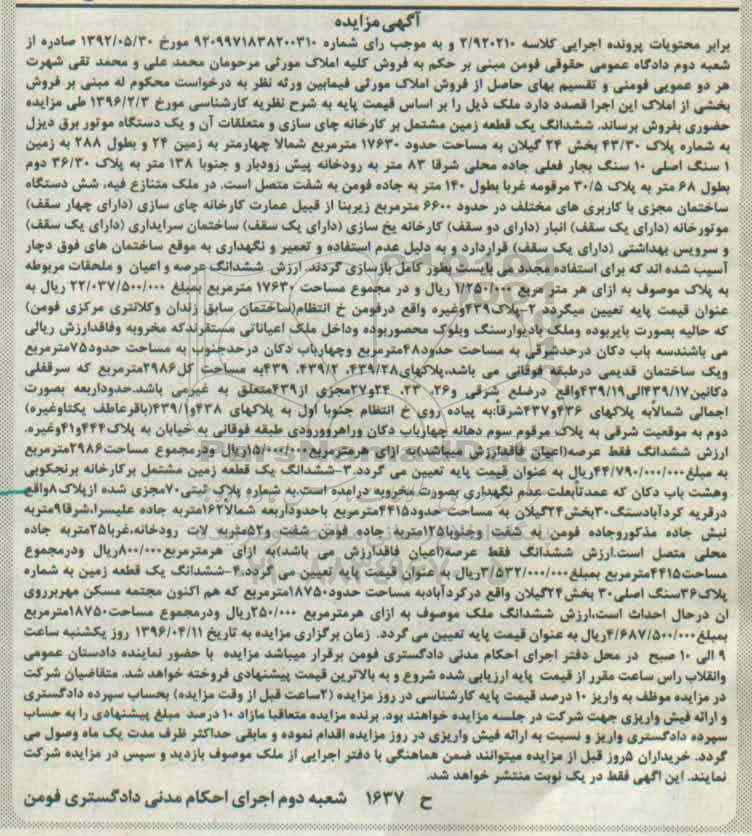 آگهی مزایده
برابر محتویات پرونده اجرایی کلاسه ۲/۹۲۰۲۱۰ و به موجب رای شماره ۹۲۰۹۹۷۱۸۳۸۲۰۰۳۱۰ مورخ ۱۳۹۲/۰۵/۳۰ صادره از
شعبه دوم دادگاه عمومی حقوقی فومن مبنی بر حکم به فروش کلیه املاک مورثی مرحومان محمد علی و محمد تقی شهرت
هر دو عمویی فومنی و تقسیم بهای حاصل از فروش املاک مورثی فیمابین ورثه نظر به درخواست محکوم له مبنی بر فروش
بخشی از املاک این اجرا قصدد دارد ملک ذیل را بر اساس قیمت پایه به شرح نظریه کارشناسی مورخ ۱۳۹۶/۲/۳ طی مزایده
حضوری بفروش برساند. ششدانگ یک قطعه زمین مشتمل بر کارخانه چای سازی و متعلقات آن و یک دستگاه موتور برق دیزل
به شماره پلاک ۴۳/۳۰ بخش ۲۴ گیلان به مساحت حدود ۱۷۶۳۰ مترمربع شمالا چهارمتر به زمین ۲۴ و بطول ۲۸۸ به زمین
۱ سنگ اصلی ۱۰ سنگ بجار فعلی جاده محلی شرقا ۸۳ متر به رودخانه پیش زودبار و جنوبا ۱۳۸ متر به پلاک ۳۶/۳۰ دوم
بطول ۶۸ متر به پلاک ۳۰/۵ مرقومه غربا بطول ۱۴۰ متر به جاده فومن به شفت متصل است. در ملک متنازع فیه، شش دستگاه
ساختمان مجزی با کاربری های مختلف در حدود ۶۶۰۰ مترمربع زیربنا از قبیل عمارت کارخانه چای سازی (دارای چهار سقف)
موتورخانه (دارای یک سقف) انبار (دارای دو سقف) کارخانه یخ سازی (دارای یک سقف) ساختمان سرایداری (دارای یک سقف)
و سرویس بهداشتی (دارای یک سقف) قراردارد و به دلیل عدم استفاده و تعمیر و نگهداری به موقع ساختمان های فوق دچار
آسیب شده اند که برای استفاده مجدد می بایست بطور کامل بازسازی گردند. ارزش ششدانگ عرصه و اعیان و ملحقات مربوطه
به پلاک موصوف به ازای هر متر مربع ۱/۲۵۰/۰۰۰ ریال و در مجموع مساحت ۱۷۶۳۰ مترمربع بمبلغ ۲۲/۰۳۷/۵۰۰/۰۰۰ ریال به
عنوان قیمت پایه تعیین میگردد.۲-پلاک۴۳۹وغیره واقع درفومن خ انتظام(ساختمان سابق زندان وکلانتری مرکزی فومن)
که حالیه بصورت بایربوده وملک بادیوارسنگ وبلوک محصوربوده وداخل ملک اعیاناتی مستقرندکه مخروبه وفاقدارزش ریالی
می باشندسه باب دکان درحدشرقی به مساحت حدود۴۸مترمربع وچهارباب دکان درحدجنوب به مساحت حدود۷۵مترمربع
ویک ساختمان قدیمی درطبقه فوقانی می باشد،پلاکهای۴۳۹/۲۸، ۴۳۹/۲، ۴۳۹به مساحت کل۲۹۸۶مترمربع که سرقفلی
دکانین۴۳۹/۱۷الی۴۳۹/۱۹واقع درضلع شرقی و۲۶، ۲۳، ۲۴و۲۷مجزی از۴۳۹متعلق به غیرمی باشد.حدوداربعه بصورت
اجمالی شمالابه پلاکهای ۴۳۶و۴۳۷شرقا:به پیاده روی خ انتظام جنوبا اول به پلاکهای ۴۳۸و۴۳۹/۱(باقرعاطف یکتاوغیره)
دوم به موقعیت شرقی به پلاک مرقوم سوم دهانه چهارباب دکان وراهروورودی طبقه فوقانی به خیابان به پلاک۴۴۴و۴۱وغیره.
ارزش ششدانگ فقط عرصه(اعیان فاقدارزش میباشد)به ازای هرمترمربع۱۵/۰۰۰/۰۰۰ریال ودرمجموع مساحت۲۹۸۶مترمربع
به مبلغ۴۴/۷۹۰/۰۰۰/۰۰۰ریال به عنوان قیمت پایه تعیین می گردد.۳-ششدانگ یک قطعه زمین مشتمل برکارخانه برنجکوبی
وهشت باب دکان که عمدتاًبعلت عدم نگهداری بصورت مخروبه درامده است.به شماره پلاک ثبتی۷۰مجزی شده ازپلاک۸واقع
درقریه کردآبادسنگ۳۰بخش۲۴گیلان به مساحت حدود۴۴۱۵مترمربع باحدوداربعه شمالا۱۶۲متربه جاده علیسرا،شرقا۹متربه
نبش جاده مذکوروجاده فومن به شفت وجنوبا۱۲۵متربه جاده فومن شفت و۵۲متربه لات رودخانه،غربا۲۵متربه جاده
محلی متصل است.ارزش ششدانگ فقط عرصه(اعیان فاقدارزش می باشد)به ازای هرمترمربع۸۰۰/۰۰۰ریال ودرمجموع
مساحت۴۴۱۵مترمربع بمبلغ۳/۵۳۲/۰۰۰/۰۰۰ریال به عنوان قیمت پایه تعیین می گردد.۴-ششدانگ یک قطعه زمین به شماره
پلاک۳۶سنگ اصلی۳۰ بخش۲۴گیلان واقع درکردآبادبه مساحت حدود۱۸۷۵۰مترمربع که هم اکنون مجتمه مسکن مهربرروی
ان درحال احداث است،ارزش ششدانگ ملک موصوف به ازای هرمترمربع ۲۵۰/۰۰۰ریال ودرمجموع مساحت۱۸۷۵۰مترمربع
بمبلغ۴/۶۸۷/۵۰۰/۰۰۰ریال به عنوان قیمت پایه تعیین می گردد. زمان برگزاری مزایده به تاریخ ۱۳۹۶/۰۴/۱۱ روز یکشنبه ساعت
۹ الی ۱۰ صبح در محل دفتر اجرای احکام مدنی دادگستری فومن برقرار میباشد مزایده با حضور نماینده دادستان عمومی
وانقلاب راس ساعت مقرر از قیمت پایه ارزیابی شده شروع و به بالاترین قیمت پیشنهادی فروخته خواهد شد. متقاضیان شرکت
در مزایده موظف به واریز ۱۰ درصد قیمت پایه کارشناسی در روز مزایده (۲ساعت قبل از وقت مزایده) بحساب سپرده دادگستری
و ارائه فیش واریزی جهت شرکت در جلسه مزایده خواهند بود. برنده مزایده متعاقبا مازاد ۱۰ درصد مبلغ پیشنهادی را به حساب
سپرده دادگستری واریز و نسبت به ارائه فیش واریزی در روز مزایده اقدام نموده و مابقی حداکثر ظرف مدت یک ماه وصول می
گردد. خریداران ۵روز قبل از مزایده میتوانند ضمن هماهنگی با دفتر اجرایی از ملک موصوف بازدید و سپس در مزایده شرکت
نمایند. این اگهی فقط در یک نوبت منتشر خواهد شد.
ح ۱۶۳۷ شعبه دوم اجرای احکام مدنی دادگستری فومن